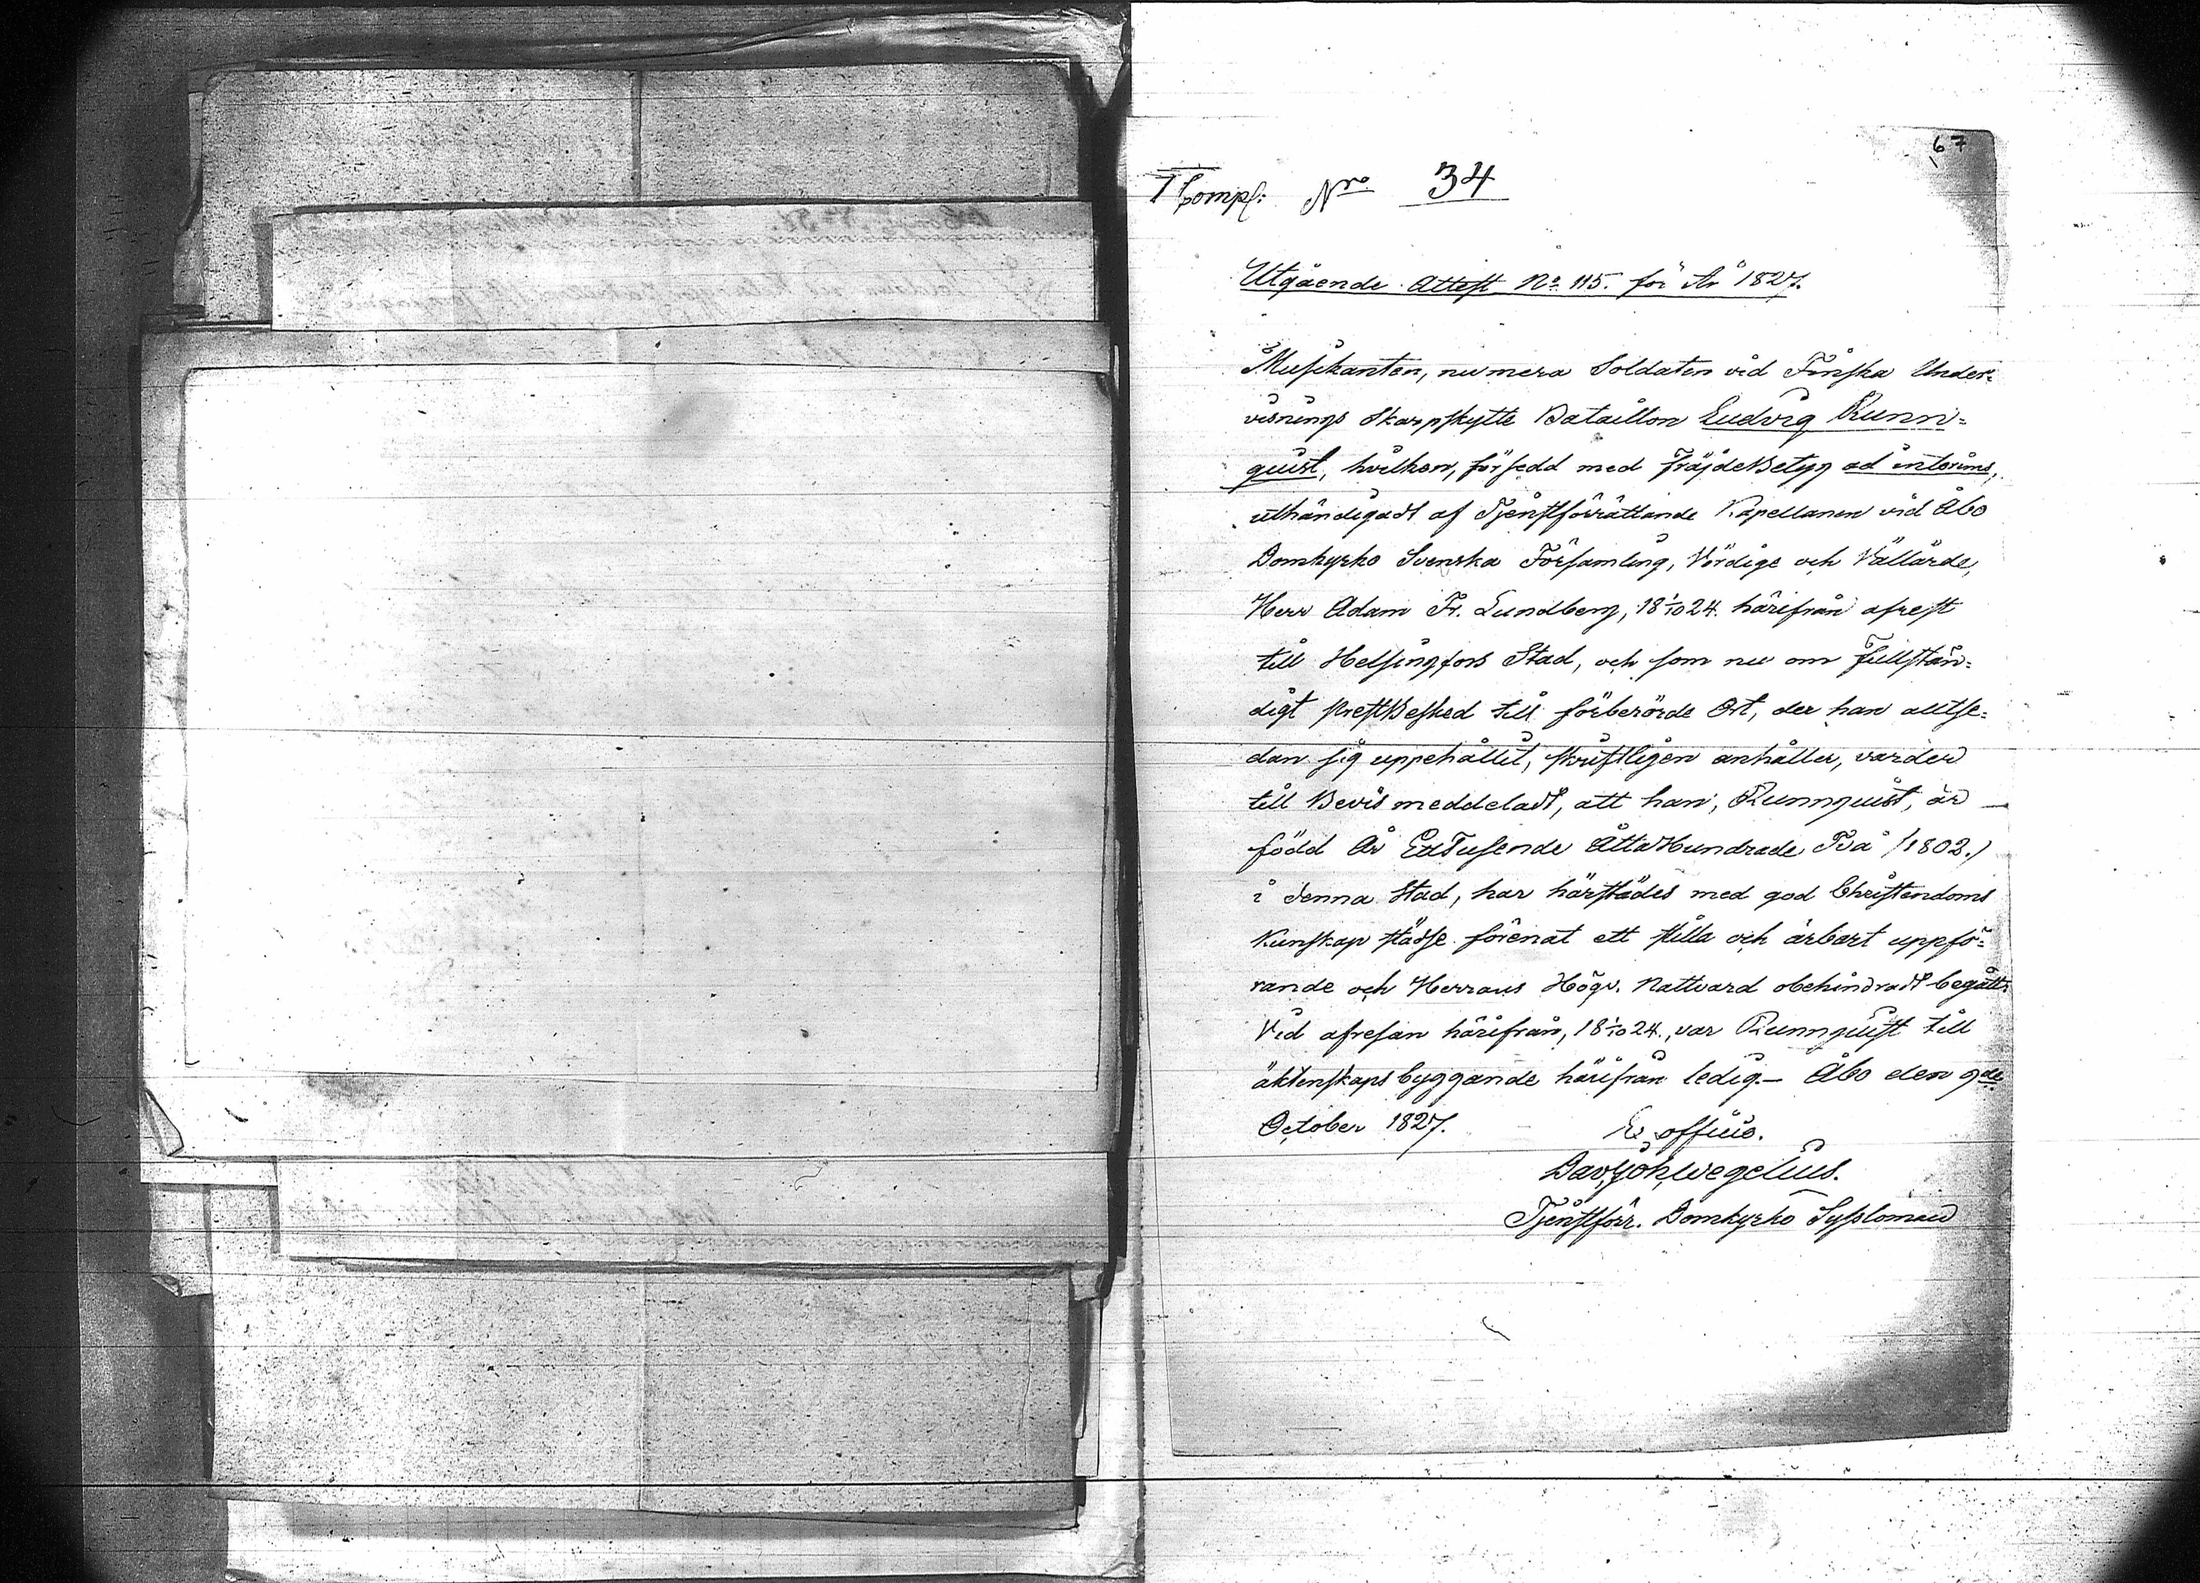 67
I Comp: Nro 34
Utgående Attest No 115. för År 1827.
Musikanten, numera Soldaten vid Finska Under-
visnings Skarpskytte Bataillon Ludvig Runn-
quist, hvilken, försedd med FräjdeBetyg ad interims,
uthändigadt af Tjenstförrättande Kapellanen vid Åbo
Domkyrko Svenska Församling, Vördige och Vällärde,
Herr Adam Fr. Lundberg, 18 1/10 24. härifrån afrest
till Helsingfors Stad, och som nu om fullstän-
digt PrestBesked till förberörde Ort, der han alltse-
dan sig uppehållit, skriftligen anhåller, varder
till Bevis meddeladt, att han, Runnquist, är
född År EttTusende ÅttaHundrade Två /1802./
i denna Stad, har härstädes med god Christendoms
Kunskap städse förenat ett stilla och ärbart uppfö-
rande och Herrans Högv. Nattvard obehindradt begått.
Vid afresan härifrån, 18 1/10 24., var Runnquist till
äktenskaps byggande härifrån ledig.- Åbo den 9de
October 1827.
Ex officio.
Dav. Joh. Wegelius.
Tjenstförr. Domkyrko Sysloman